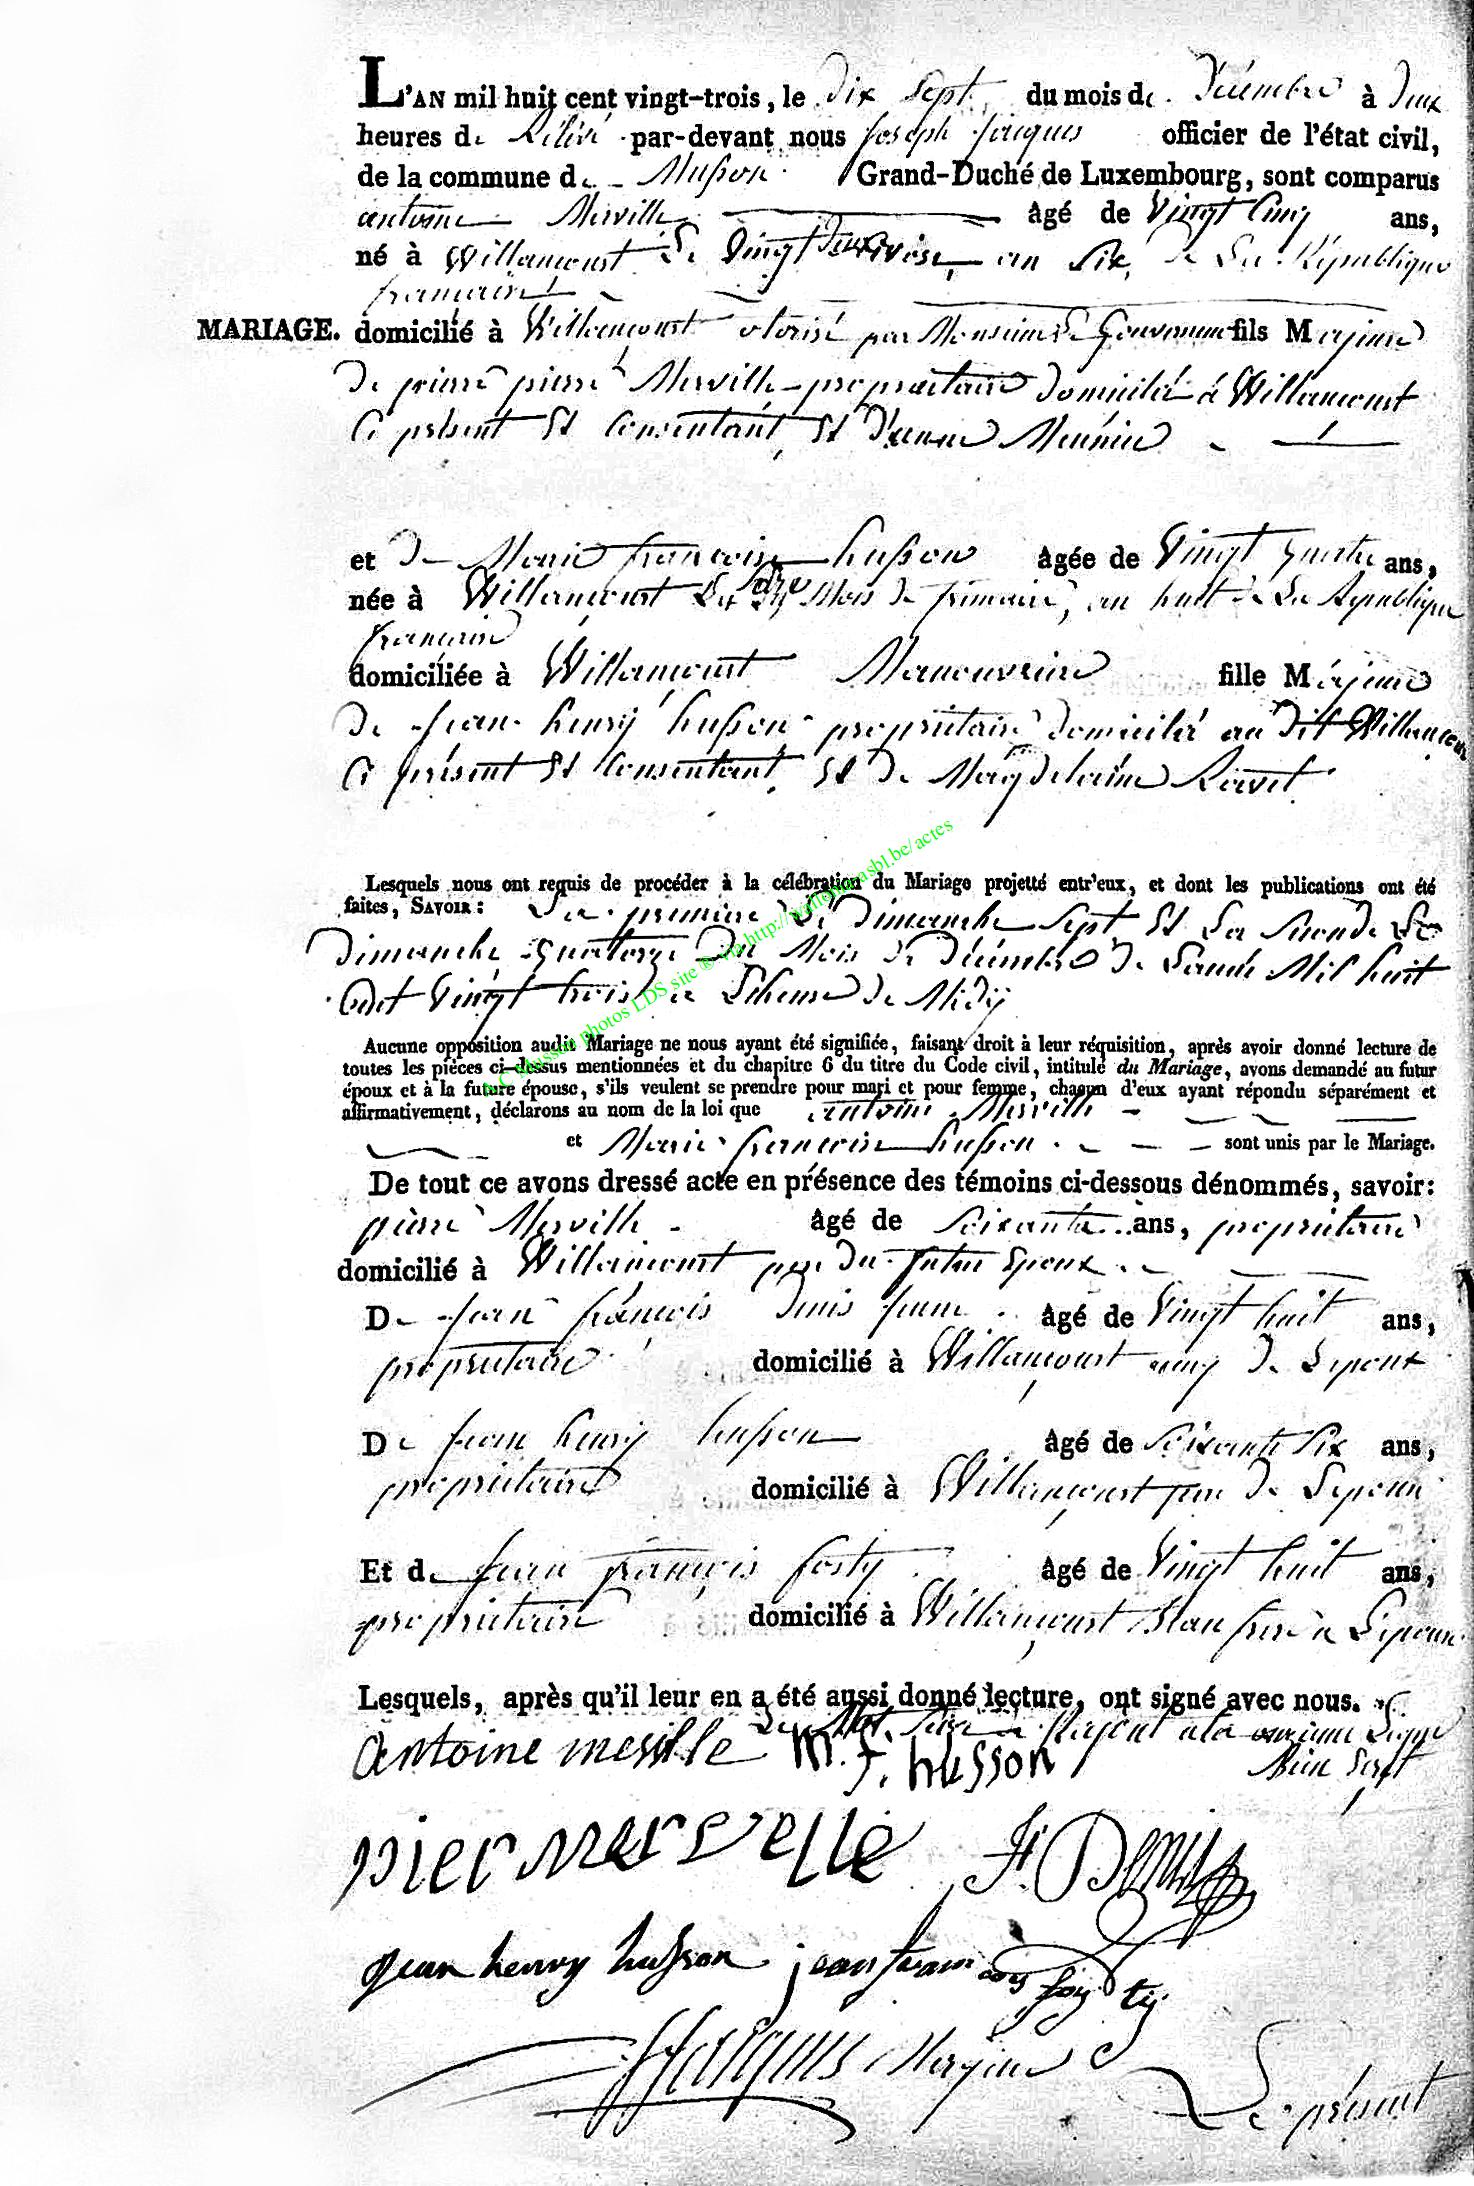 L'AN mil huit cent vingt-trois, le Dix Sept du mois de Décembre à Deux
heures de Rélévé par-devant nous Joseph Jacques officier de l'état civil,
de la commune de Musson Grand-Duché de Luxembourg, sont comparus
antoine Merville âgé de Vingt Cinq ans,
né à Willancourt Le Vingt Deux nivose, an Six, de La République
française
MARIAGE. domicilié à Willancourt otorisé par Monsieur Le Gouverneur fils Majeur
De pierre pierre Merville propriétaire Domicilié à Willancourt
Ci présent Et Consentant, Et D'anne Meunier
et De Marie françoise husson âgée de Vingt quatre ans,
née à Willancourt Le Mois De frimaire, an huit de La République
française
domiciliée à Willancourt Manouvrière fille Majeure
De Jean henry husson propriétaire Domicilié au Dit Willancourt
Ci présent Et Consentant, Et De Magdelaine Ravet
Lesquels nous ont requis de procéder à la célébration du Mariage projetté entr'eux, et dont les publications ont été
faites, SAVOIR : La première Le Dimanche Sept Et La Seconde Le
Dimanche quatorze Du Mois De Décembre De Lannée Mil huit
Cent Vingt trois a Lheure De Midÿ
Aucune opposition audit Mariage ne nous ayant été signifiée, faisant droit à leur réquisition, après avoir donné lecture de
toutes les pièces ci-dessus mentionnées et du chapitre 6 du titre du Code civil, intitulé du Mariage, avons demandé au futur
époux et à la future épouse, s'ils veulent se prendre pour mari et pour femme, chacun d'eux ayant répondu séparément et
affirmativement, déclarons au nom de la loi que antoine Merville
et Marie françoise husson sont unis par le Mariage.
De tout ce avons dressé acte en présence des témoins ci-dessous dénommés, savoir :
pierre Merville âgé de Soixante ans, propriétaire
domicilié à Willancourt père Du futur Epoux
De Jean françois Denis jeune âgé de Vingt huit ans,
propriétaire domicilié à Willancourt amy De Lepoux
De Jean henry husson âgé de Soixante Six ans,
propriétaire domicilié à Willancourt père De Lepouse
Et de Jean françois fosty âgé de Vingt huit ans,
propriétaire domicilié à Willancourt Bau frere a Lepouse
Lesquels, après qu'il leur en a été aussi donné lecture, ont signé avec nous.
Le Mot à la onzieme Ligne
Antoine merville m. f. husson
pier mervelle Jf. Denis
jean henry husson jean francois fosty
JJacques Mayeur
Le présent
A.C Musson photos LDS site ® via http://wallonica asbl.be/actes